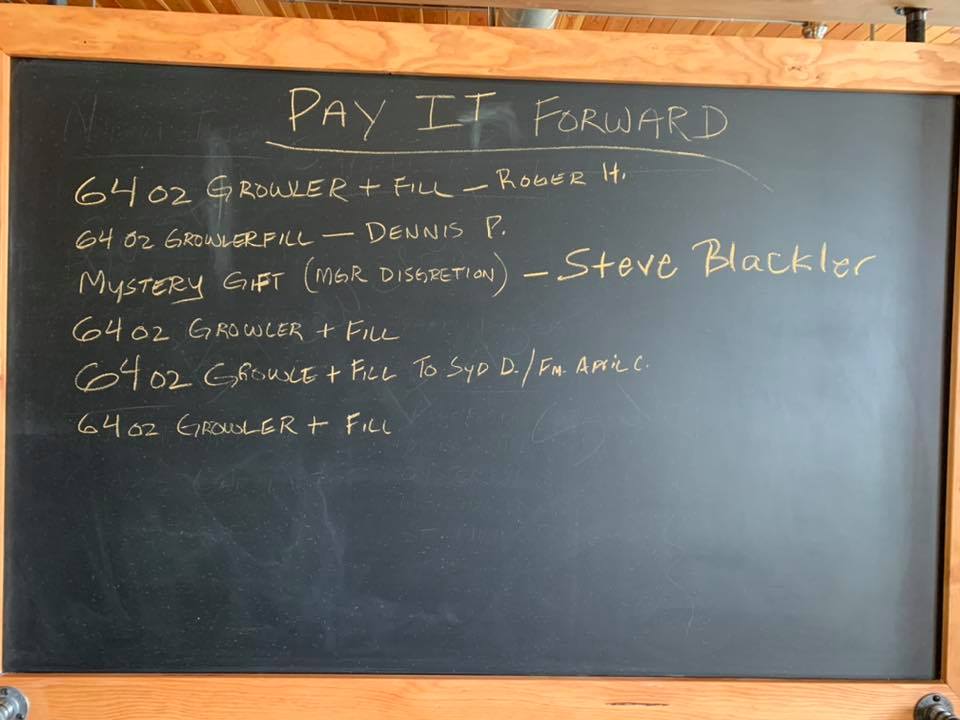 PAY IT FORWARD
64 OZ GROWLER + FILL — ROGER H.
64 OZ GROWLERFILL — DENNIS P.
MYSTERY GIFT (MGR DISGRETION) — Steve Blackler
64 OZ GROWLER + FILL
64 OZ GROWLE + FILL TO SYD D./FM. APRIL C.
64 OZ GROWLER + FILL